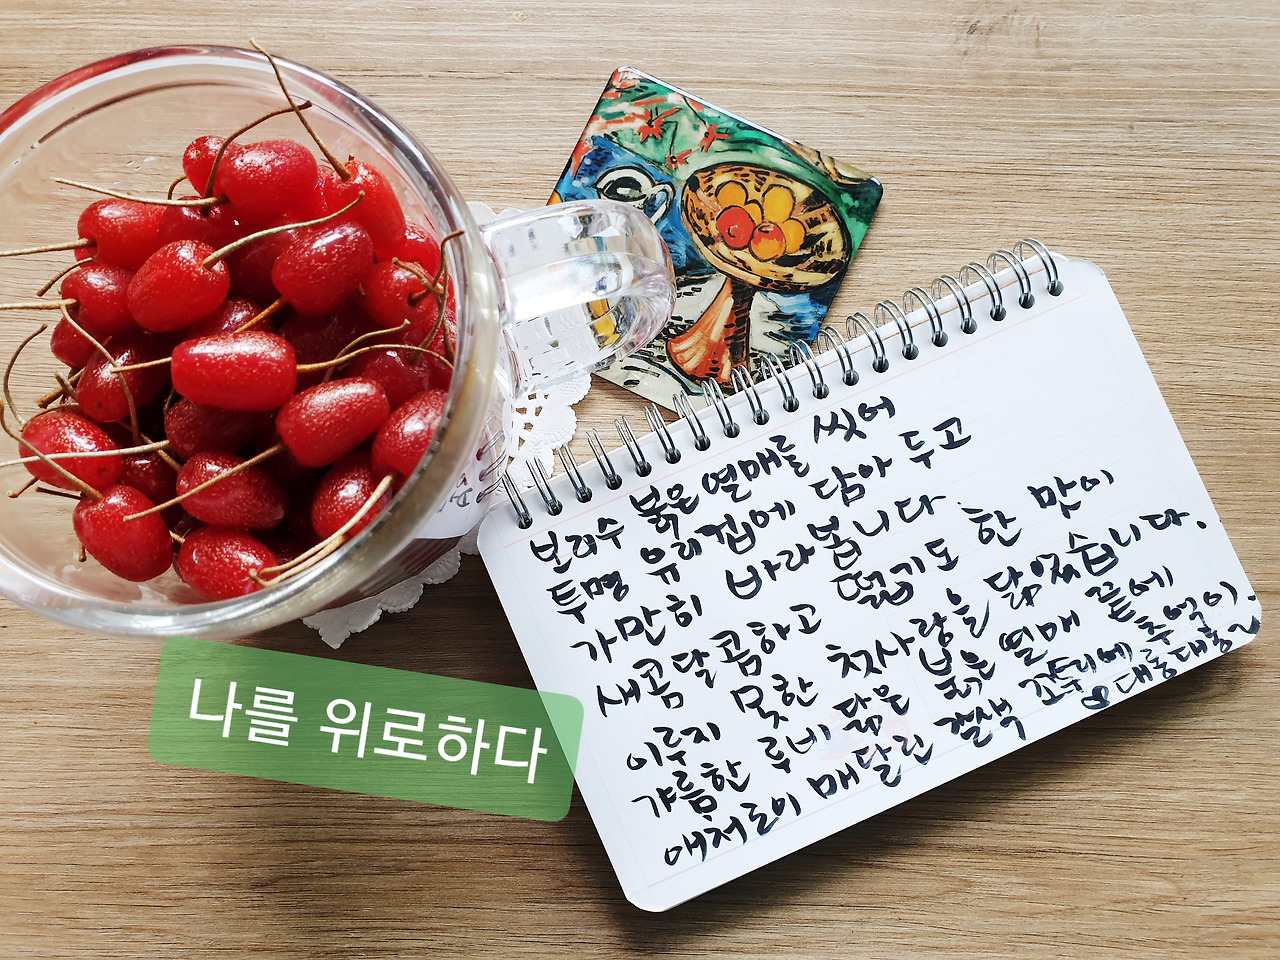 보리수 붉은 열매를 씻어
투명 유리컵에 담아 두고
가만히 바라봅니다
새콤달콤하고 떫기도 한 맛이
이루지 못한 첫사랑을 닮았습니다.
갸름한 루비 닮은 붉은 열매 끝에
애처로이 매달린 갈색 꼬투리에 추억이
대롱대롱.
나를 위로하다